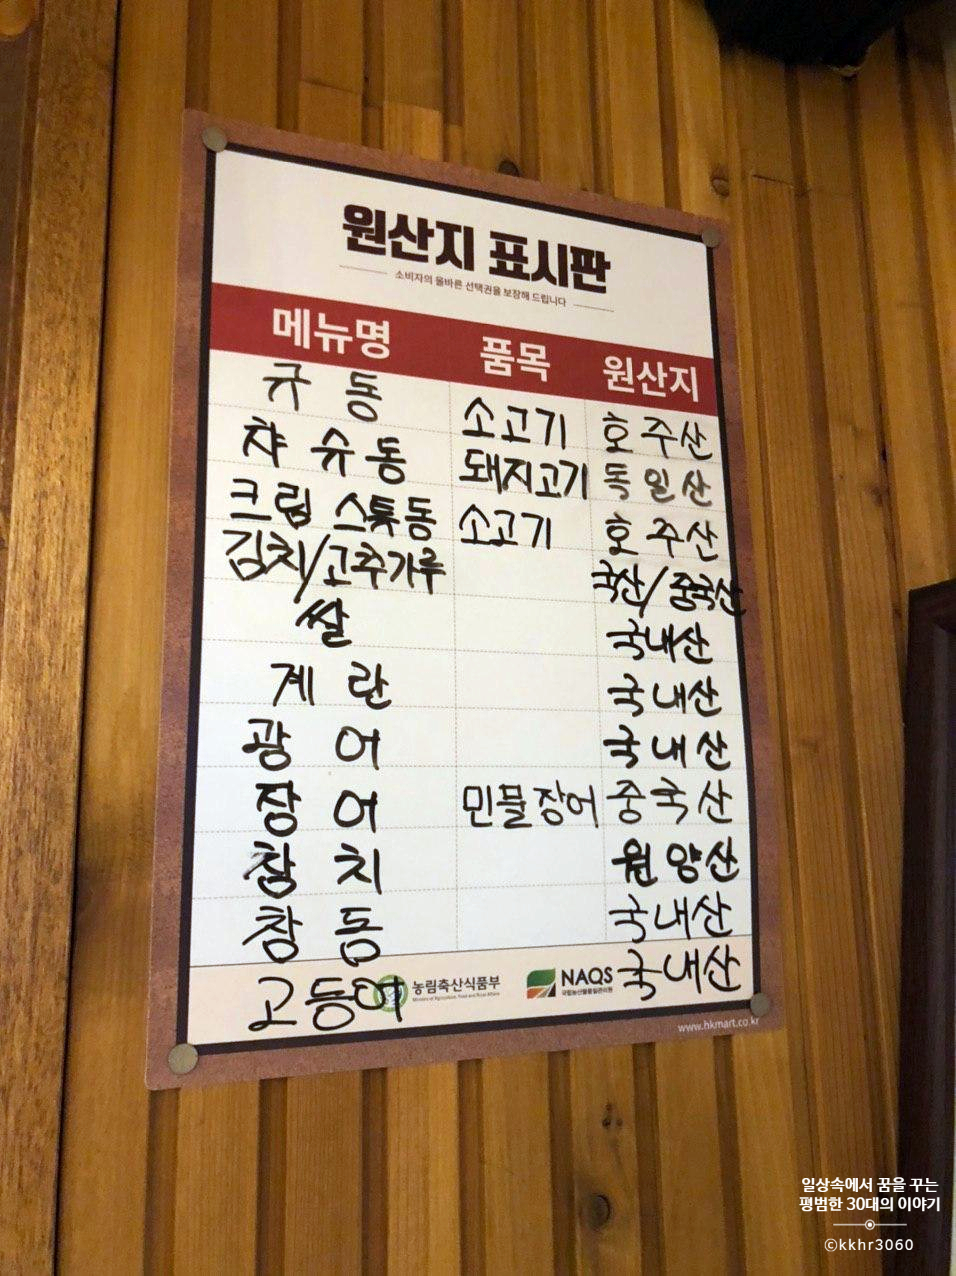 원산지 표시판
소비자의 올바른 선택권을 보장해 드립니다
메뉴명 품목 원산지
규동 소고기 호주산
챠슈동 돼지고기 독일산
크림 스튜동 소고기 호주산
김치/고추가루 국산/중국산
쌀 국내산
계란 국내산
광어 국내산
장어 민물장어 중국산
참치 원양산
참돔 국내산
고등어 국내산
농림축산식품부 NAQS
국립농산물품질관리원
www.hkmart.co.kr
일상속에서 꿈을 꾸는
평범한 30대의 이야기
©kkhr3060